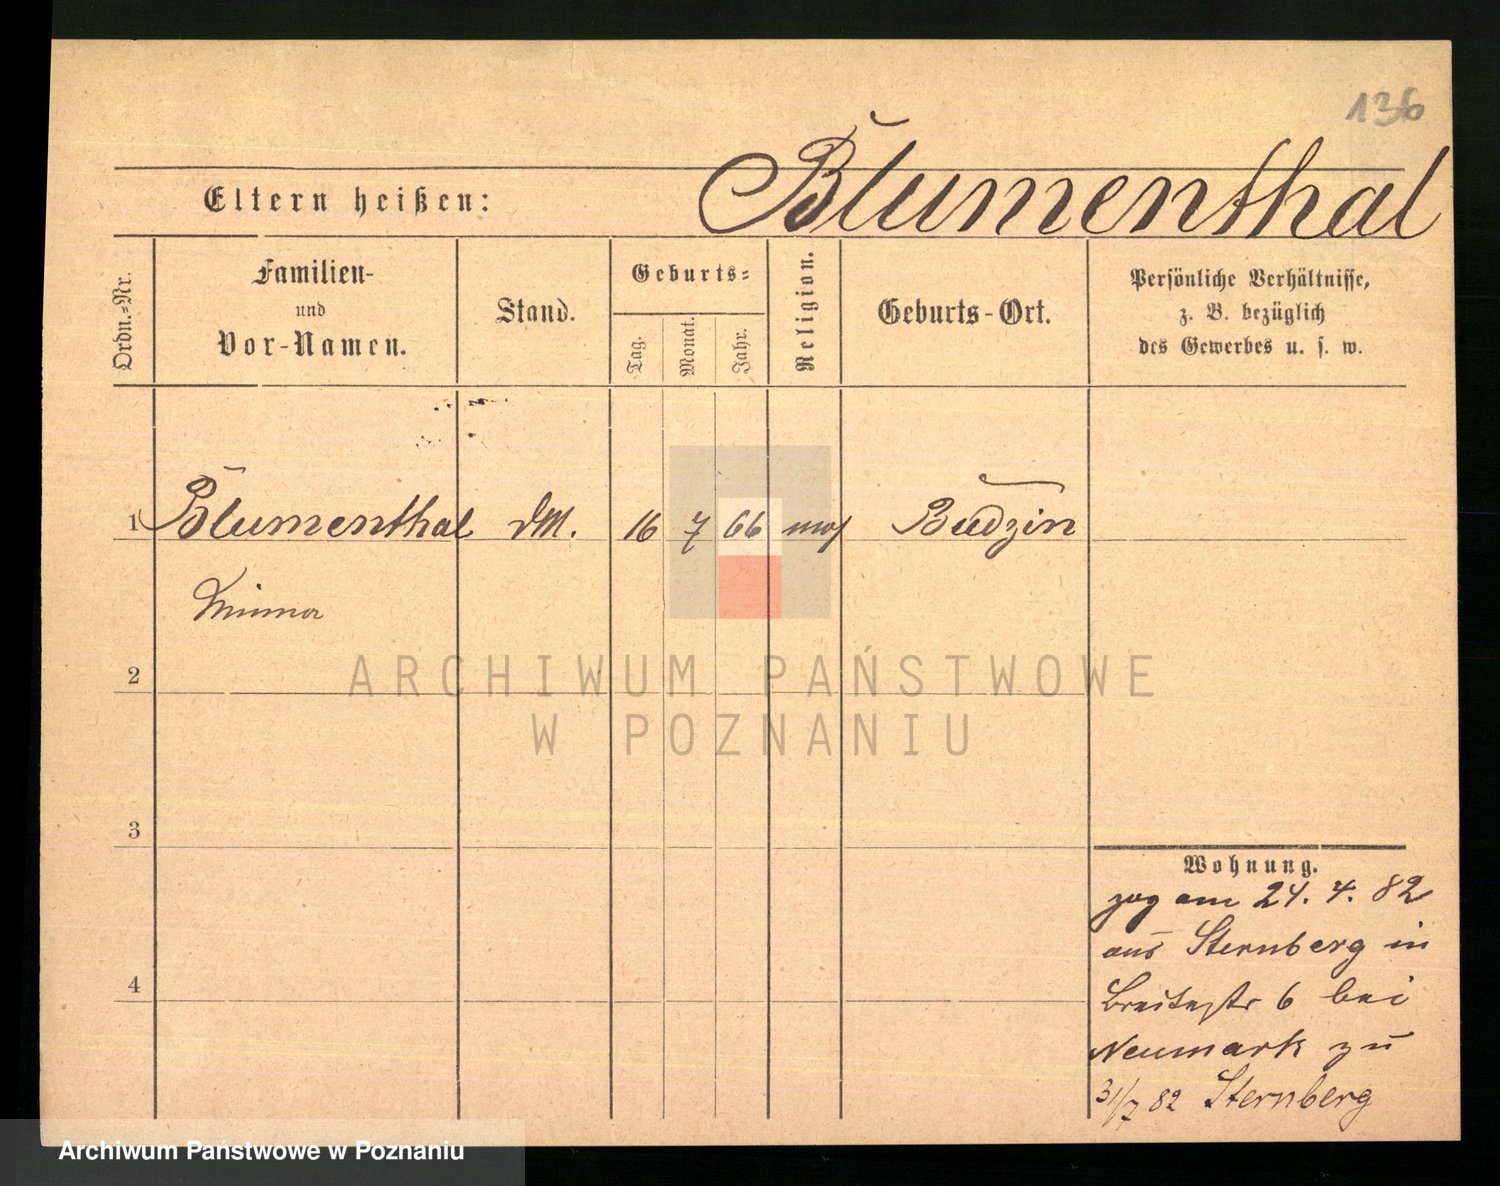 136
Blumenthal
Eltern heißen:
Ordn.-Nr.
Familien-
und
Vor-Namen.
Stand.
Geburts-
Tag.
Monat.
Jahr.
Religion.
Geburts-Ort.
Persönliche Verhältnisse,
z. B. bezüglich
des Gewerbes u. s. w.
1 Blumenthal dM. 16 7 66 mos Budzin
Minna
2
3
4
Wohnung.
zog am 24. 4. 82
aus Sternberg in
Breitestr 6 bei
Neumark zu
31/7 82 Sternberg
ARCHIWUM PAŃSTWOWE
W POZNANIU
Archiwum Państwowe w Poznaniu